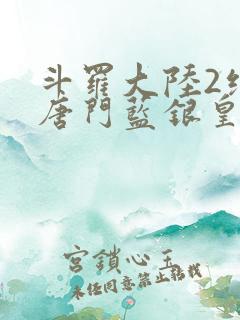 斗羅大陸2絕
唐門藍銀皇
宮鎖心玉
未經同意禁止轉載